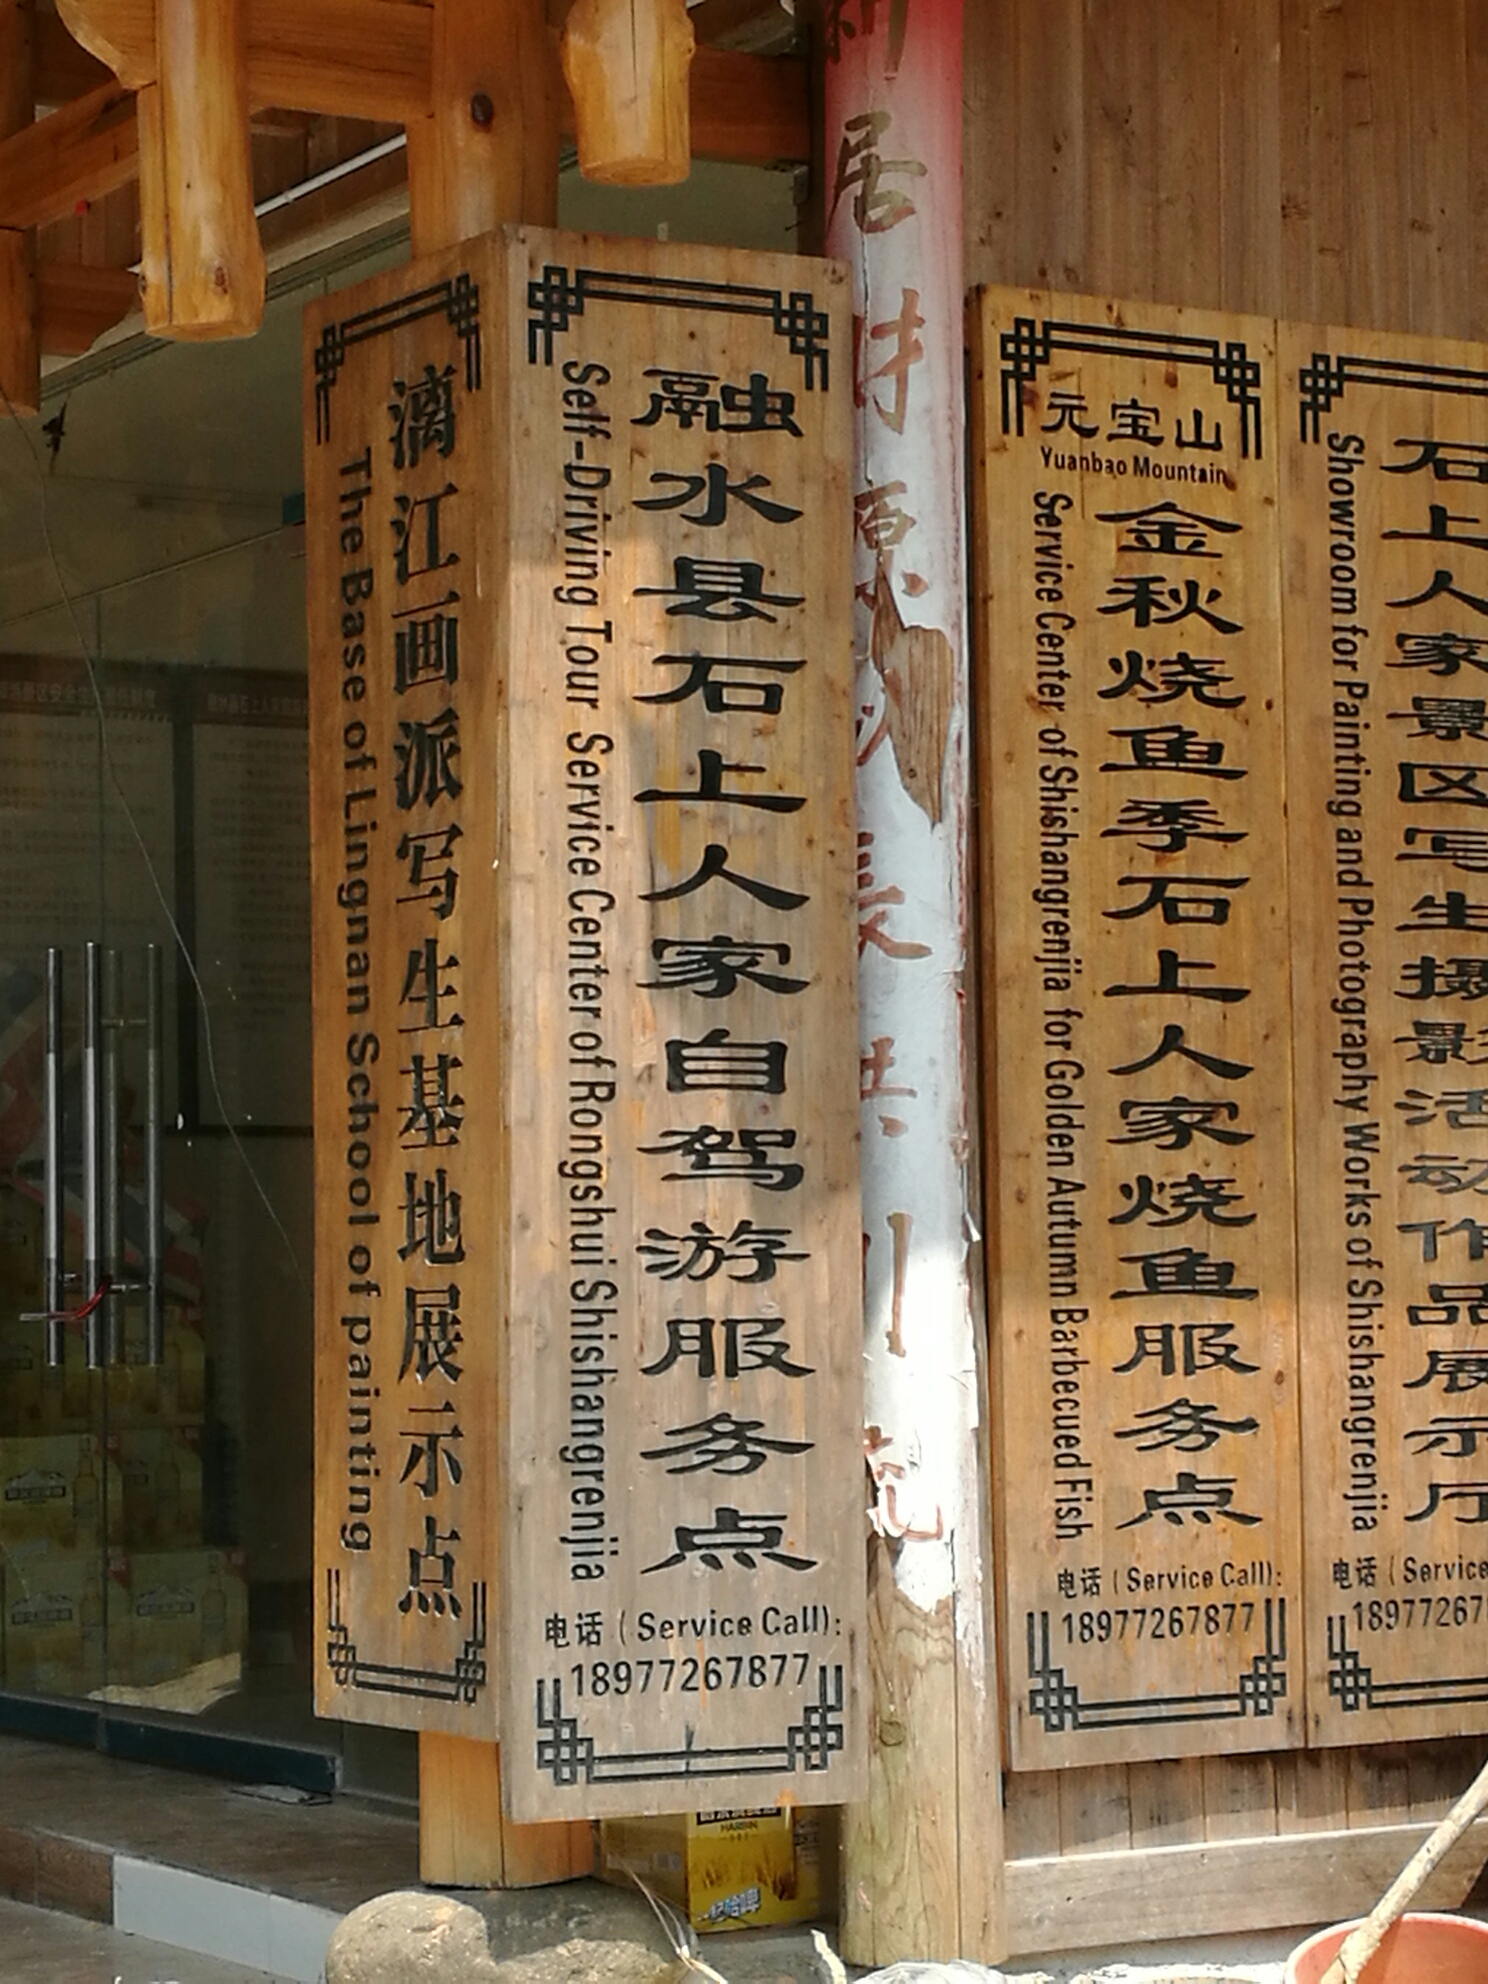 漓江画派写生基地展示点
The Base of Lingnan School of painting
融水县石上人家自驾游服务点
Self-Driving Tour Service Center of Rongshui Shishangrenjia
电话（Service Call):
18977267877
居
才
源
长
共
川
流
元宝山
Yuanbao Mountain
金秋烧鱼季石上人家烧鱼服务点
Service Center of Shishangrenjia for Golden Autumn Barbecued Fish
电话（Service Call):
18977267877
石上人家景区写生摄影活动作品展示厅
Showroom for Painting and Photography Works of Shishangrenjia
电话（Service
18977267
HARBIN